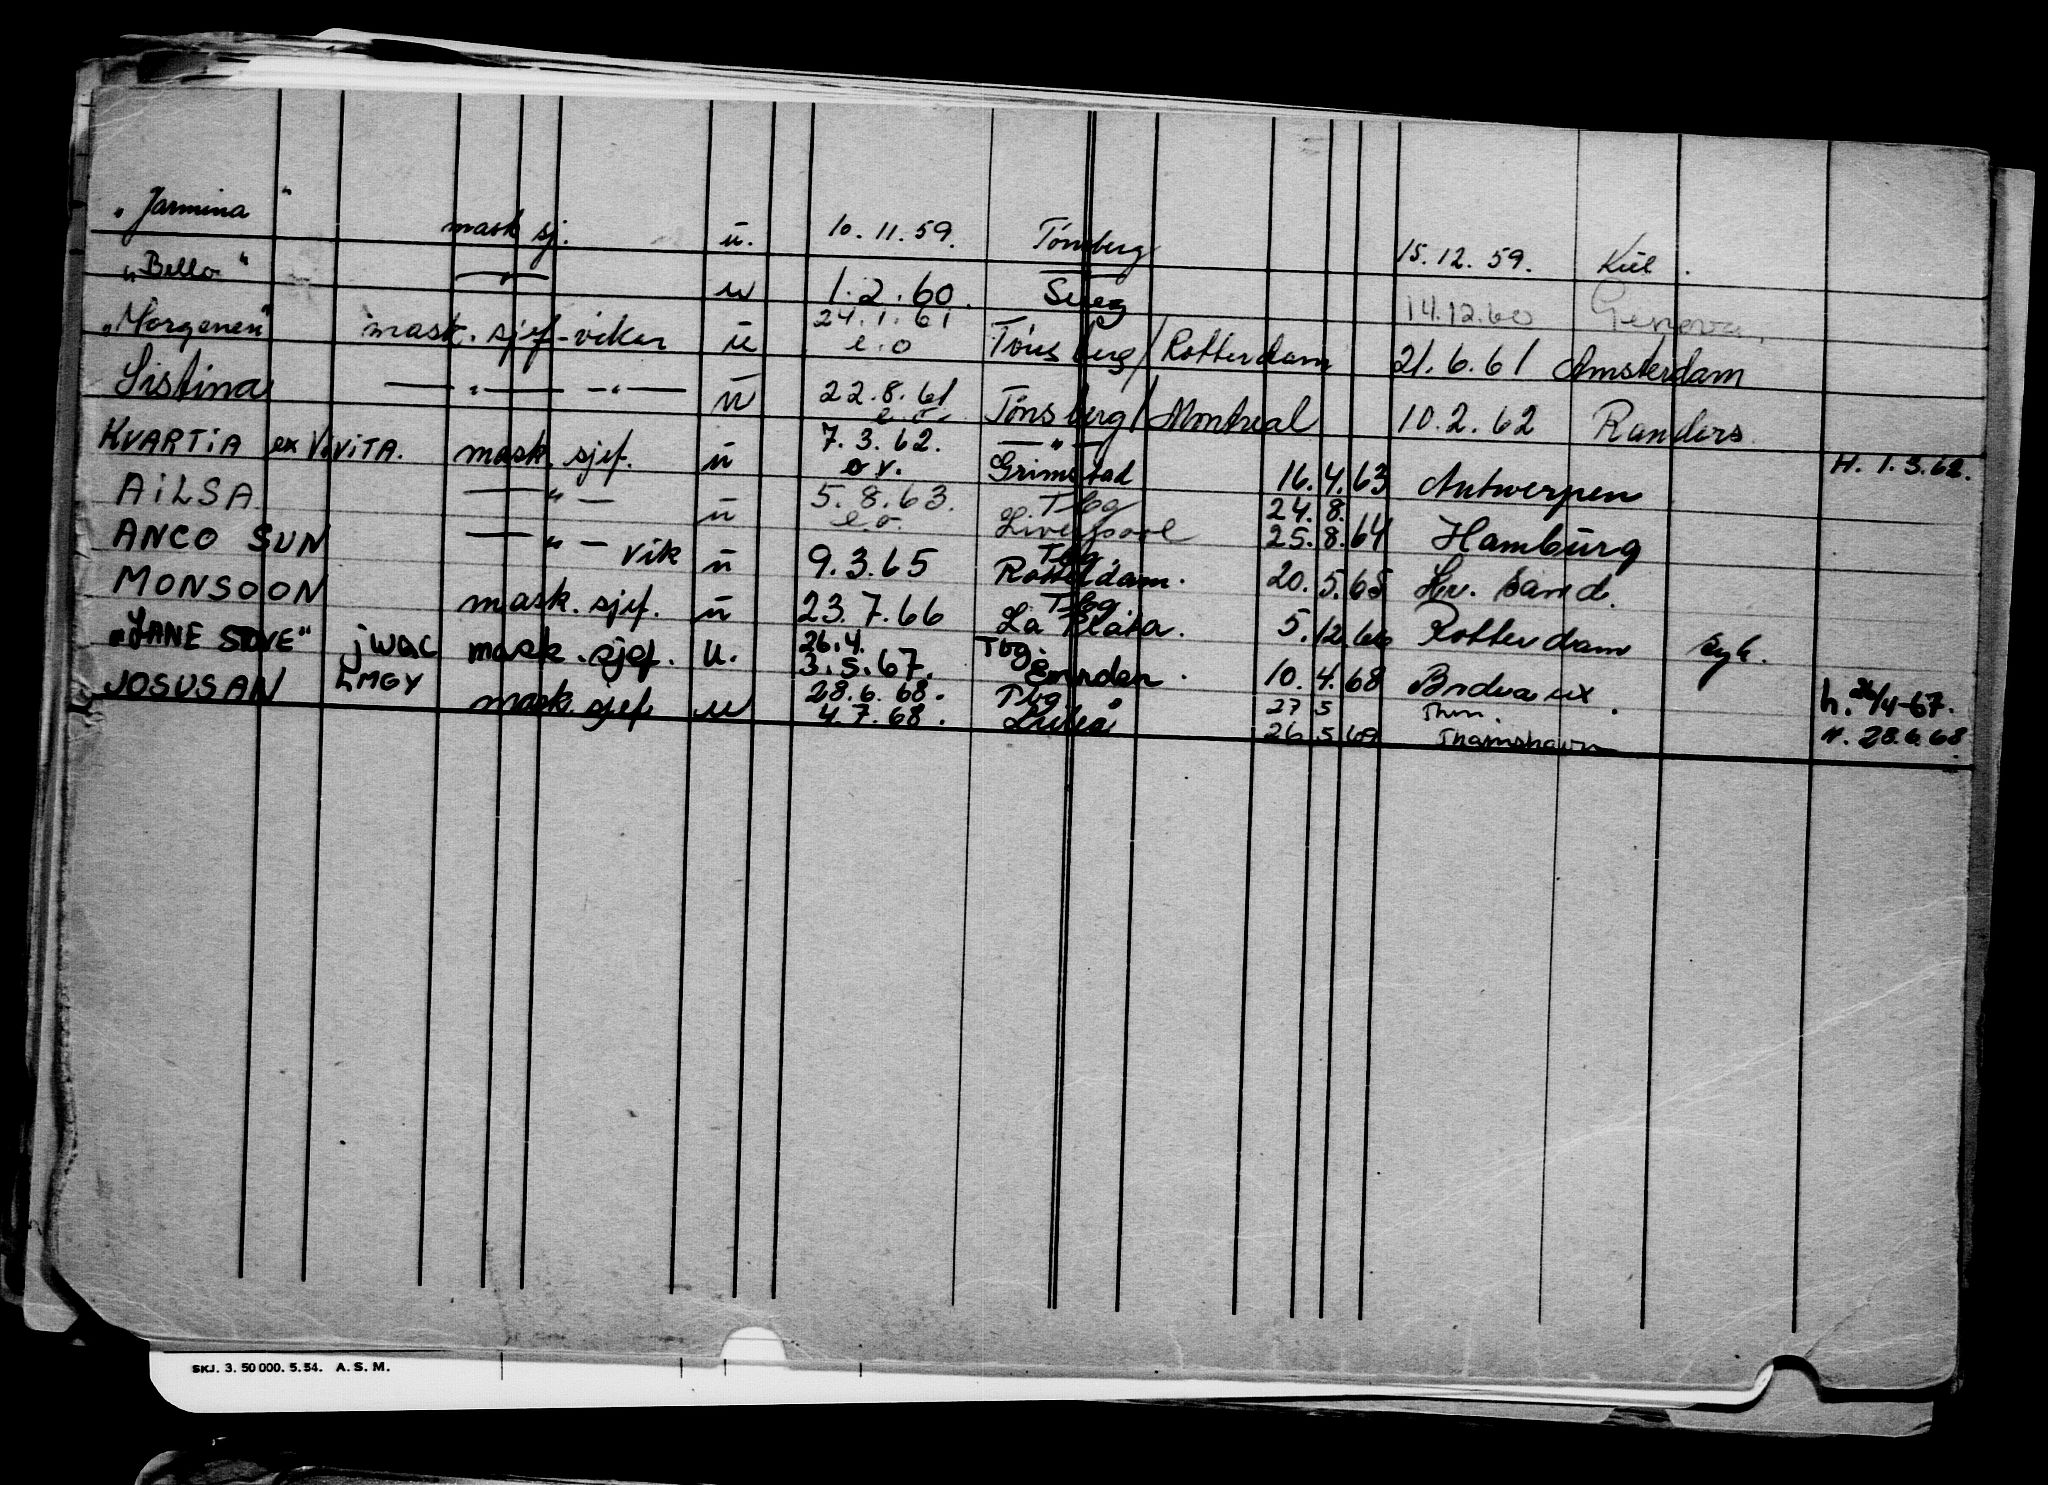 "Jarmina" mask sj. ü. 10.11.59. Tønsberg 15.12.59. Kiel.
"Bello" —"— u 1.2.60. Suez 14.12.60 Genova.
"Morgenen" mask. sjef-vikar ü 24.1.61 e.o Tønsberg/Rotterdam 21.6.61 Amsterdam
Sistina —"— —"— ü 22.8.61 e.o Tønsberg/Montreal 10.2.62 Randers
KVARTIA ex VIVITA. mask. sjef. ü 7.3.62. o.v. —"— Grimstad 16.4.63 Antwerpen H. 1.3.62.
AILSA —"— ü 5.8.63. e.o. Tbg Liverpool 24.8. 25.8.64 Hamburg
ANCO SUN —"— vik ü 9.3.65 Tbg Rotterdam. 20.5.65 Kr. sand.
MONSOON mask. sjef. ü 23.7.66 Tbg. La Plata. 5.12.66 Rotterdam syk.
"JANE STOVE" jWQC mask. sjef. u. 26.4. 3.5.67. Tbg. Emnden. 10.4.68 Bodeaux. h. 26/4-67.
JOSUSAN LMGY mask sjef u 28.6.68. 4.7.68. Tbg Luleå 27 5 26.5.69 Thm. Thamshavn h. 28.6.68
SKJ. 3. 50 000. 5. 54. A. S. M.